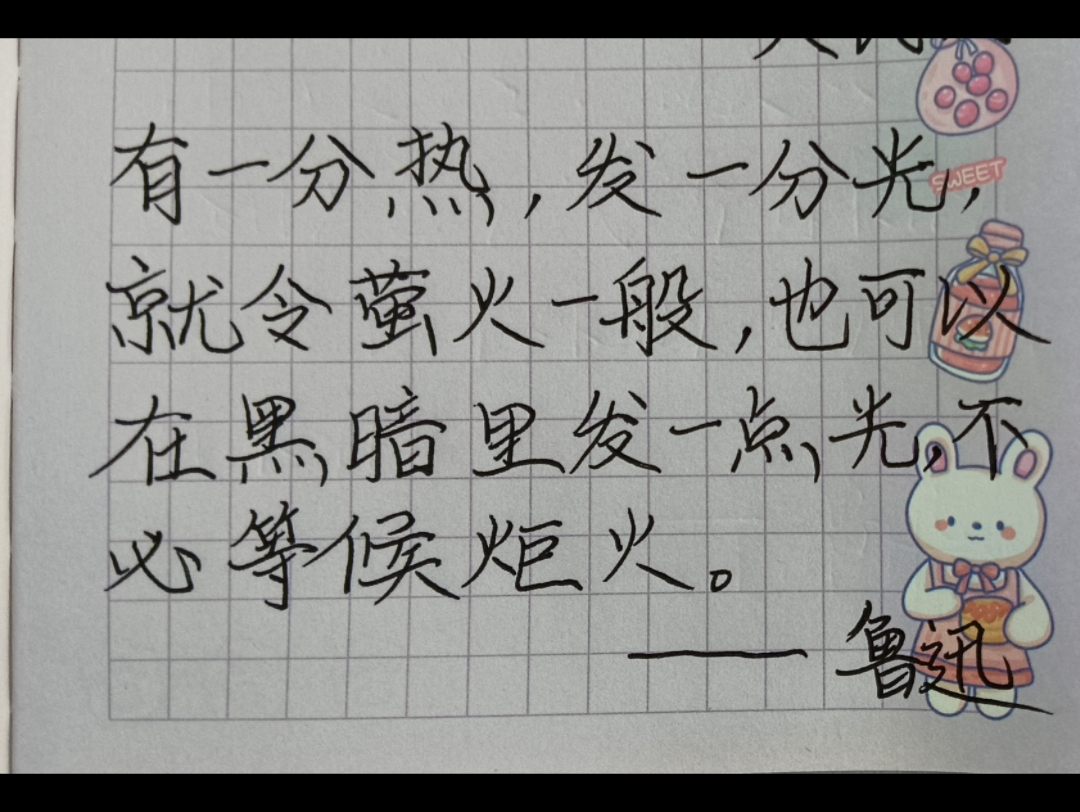 有一分热,发一分光,
SWEET
就令萤火一般,也可以
在黑暗里发一点光,不
必等候炬火。
——鲁迅